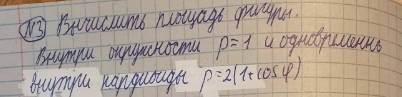 №3 Вычислить площадь фигуры.
Внутри окружности ρ=1 и одновременно
внутри кардиоиды ρ=2(1+cosφ)